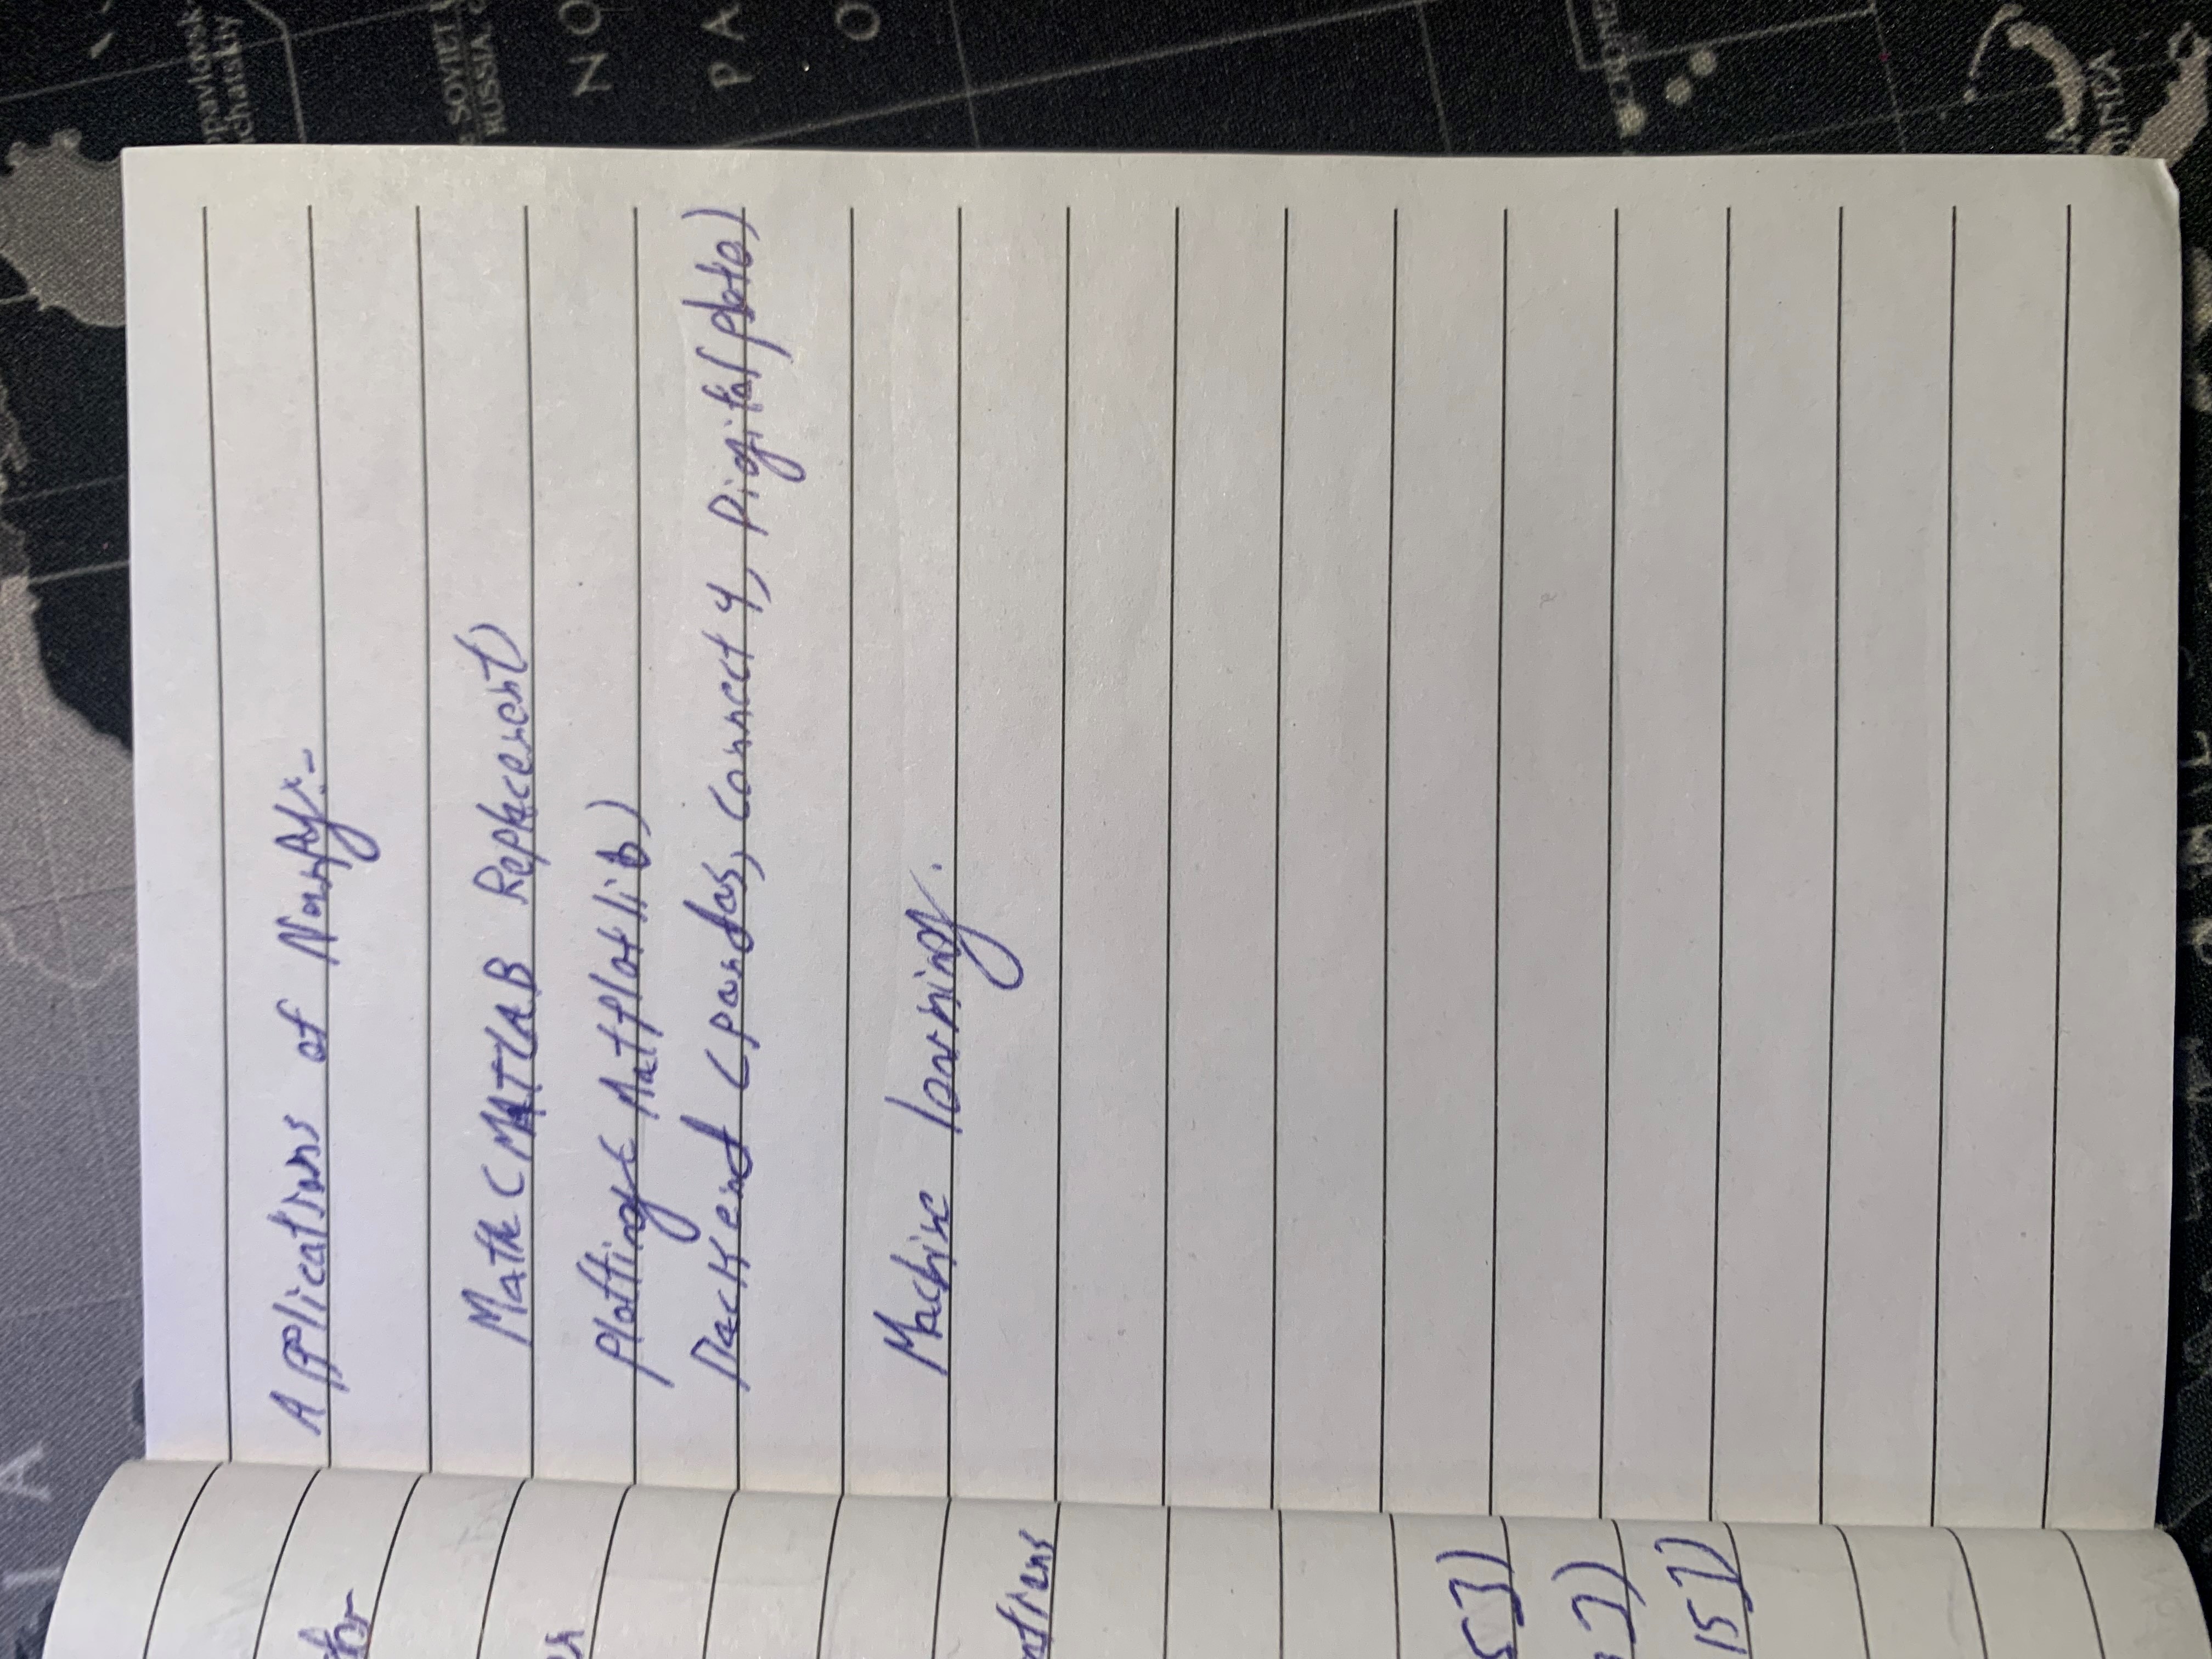 Applications of Numpy:-
Math (MATLAB Replacement)
Plotting (Matplotlib)
Backend (pandas, Connect 4, Digital photo)
Machine learning.
ntions
53])
])
15])
NO
PA
O
SOVIETS
RUSSIA